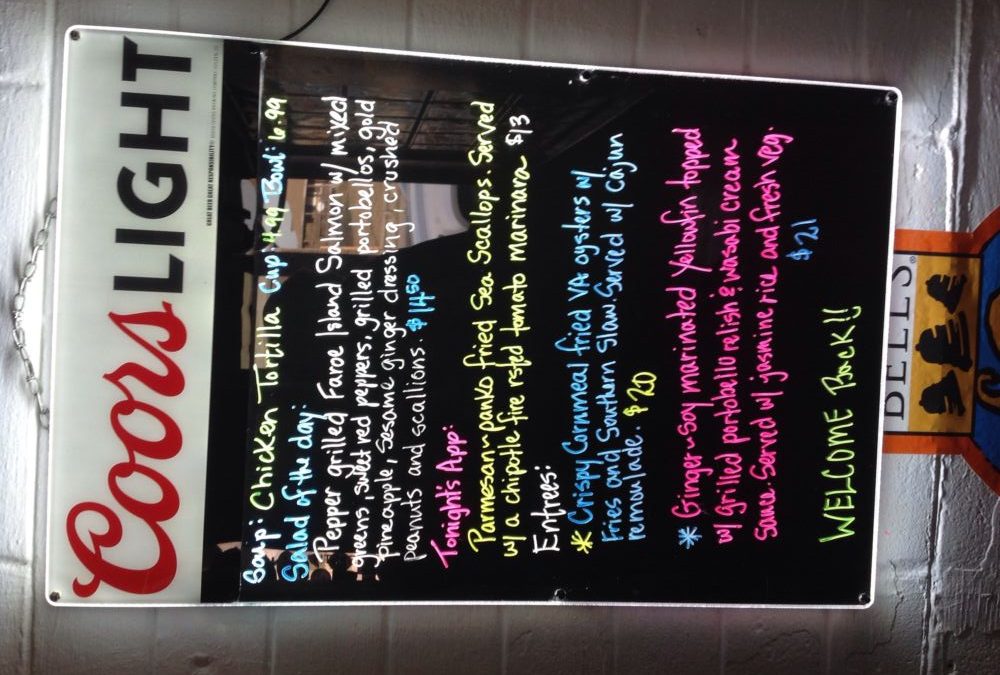 Coors LIGHT
GREAT BEER GREAT RESPONSIBILITY®
Soup: Chicken Tortilla Cup: 4.99 Bowl: 6.99
Salad of the day:
Pepper grilled Faroe Island Salmon w/ mixed
greens, sweet red peppers, grilled portobellos, gold
pineapple, sesame ginger dressing, crushed
peanuts and scallions. $14.50
Tonight's App:
Parmesan-panko fried Sea Scallops. Served
w/ a chipotle fire rsted tomato marinara $13
Entrees:
* Crispy Cornmeal fried VA oysters w/
fries and Southern Slaw. Served w/ Cajun
remoulade. $20
* Ginger-soy marinated Yellowfin topped
w/ grilled portobello relish & wasabi cream
Sauce. Served w/ jasmine rice and fresh veg.
$21
WELCOME BACK!!
BELL'S®